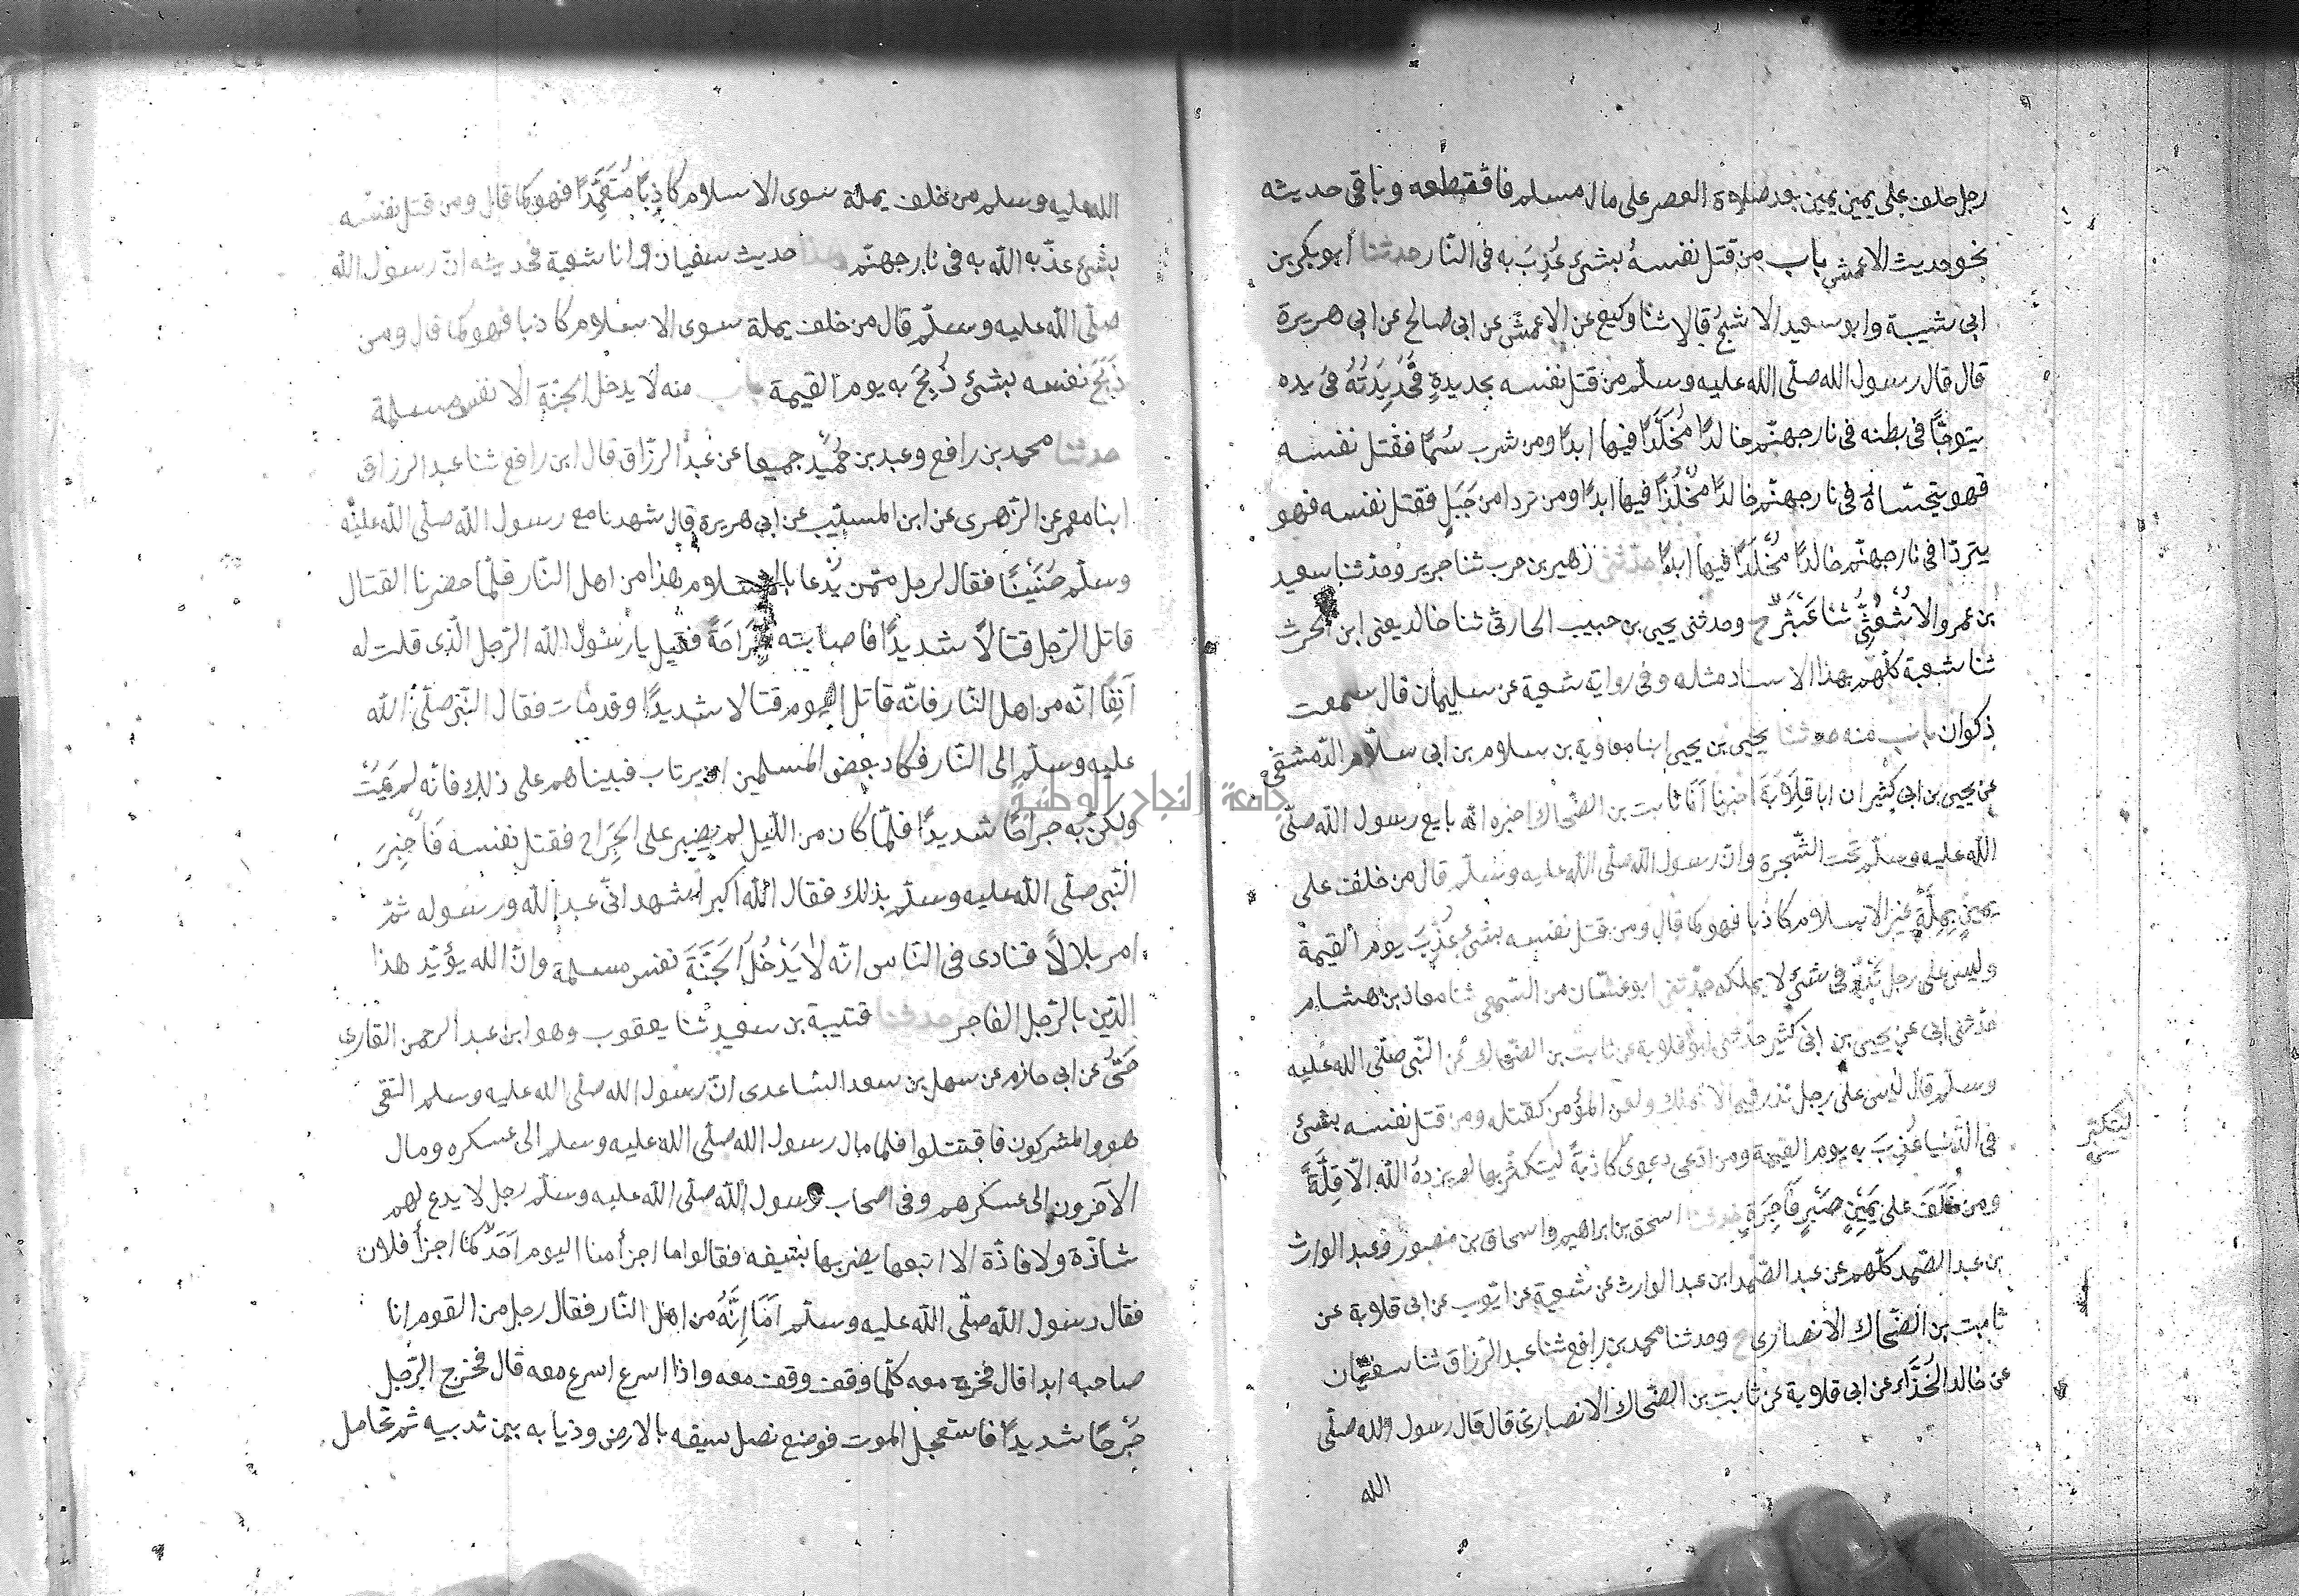 رجل حلف على يمين يمين بعد صلاة العصر على مال مسلم فاقتطعه وباقى حديثه
نحو حديث الاعمش باب من قتل نفسهُ بشئ عُذِبَ به فى النّار حدثنا أبو بكر بن
ابى شيبة وابو سعيد الاشبحُ قالا ثنا وكيع عن الاعمش عن ابى صالح عن ابى هريرة
قال قال رسول الله صلّى الله عليه وسلّم من قتل نفسه بحديدةٍ فحَدِيدَتُهُ فى يده
يتوجّأ فى بطنه فى نار جهنّم خالدًا مُخَلَّدًا فيها ابدًا ومن شرب سُمًا فقتل نفسه
فهو يتحسّاهُ فى نار جهنّم خالدًا مُخَلَّدًا فيها ابدًا ومن تردا من جَبَلٍ فقتل نفسه فهو
يتردّا فى نار جهنّم خالدًا مُخَلَّدًا فيها ابدًا حدّثنى زهير بن حرب ثنا جرير وحدّثنا سعيد
بن عمرو الاشْعُثِّى ثنا عَبْثَر ح وحدثنى يحيى بن حبيب الحارثى ثنا خالد يعنى ابن الحرث
ثنا شعبة كلّهم بهذا الاسناد مثله وفى رواية شعبة عن سليمان قال سمعت
ذكوان باب منه حدثنا يحيى بن يحيى ابنا معاوية بن سلام بن ابى سلّام الدّمشقى
عن يحيى بن ابى كثير ان ابا قِلَابَةَ اخبرنا انّا ثابت بن الضّحاك اخبره انّه بايع رسول الله صلّى
الله عليه وسلّم تحت الشّجرة وانّ رسول الله صلّى الله عليه وسلّم قال من حلف على
يمينٍ بِمِلَّةٍ غير الاسلام كاذبا فهو كما قال ومن قتل نفسه بشئ عُذِبَ يوم القيمة
وليس على رجل نَذْرٌ فى شئ لا يملكه حدّثنى ابو غسّان من السّمعى ثنا معاذ بن هشام
حدّثنى ابى عن يحيى بن ابى كثير حدّثنى ابو قلابة عن ثابت بن الضّحاك عن النّبى صلّى الله عليه
وسلّم قال ليس على رجل نذر فيما لا يملك ولعن المؤمن كقتله ومن قتل نفسه بشئ
فى الدّنيا عُذِبَ به يوم القيمة ومن ادّعى دعوى كاذبةً ليتكثّر بها لم يزدهُ الله الّا قِلَّةً
ليتكثر
ومن حَلَفَ على يَمِيْنٍ صَبْرٍ فَاجِرَةٍ حدثنا اسحق بن ابراهيم واسحاق بن منصور وعبد الوارث
بن عبد الصّمد كلّهم عن عبد الصّمد ابن عبد الوارث عن شعبة عن ايّوب عن ابى قلابة عن
ثابت بن الضّحاك الانصارى ح وحدثنا محمد بن رافع ثنا عبد الرزّاق ثنا سفيان
عن خالد الحَذَّاء عن ابى قلابة عن ثابت بن الضّحاك الانصارى قال قال رسول الله صلّى
الله
الله عليه وسلم من حلف بملة سوى الاسلام كاذبًا مُتَعَمِّدًا فهو كما قال ومن قتل نفسه
بشئ عذّبه الله به فى نار جهنّم هذا حديث سفيان وانا شعبة فحديثه انّ رسول الله
صلّى الله عليه وسلّم قال من حلف بملة سوى الاسلام كاذبا فهو كما قال ومن
ذَبَحَ نفسه بشئ ذُبِحَ به يوم القيمة باب منه لا يدخل الجنة الا نفس مسلمة
حدثنا محمد بن رافع وعبد بن حُمَيْد جميعا عن عبد الرزّاق قال ابن رافع ثنا عبد الرزاق
ابنا معمر عن الزّهرى عن ابن المسيّب عن ابى هريرة قال شهدنا مع رسول الله صلّى الله عليه
وسلّم حُنَيْنًا فقال لرجل ممّن يُدْعا بالاسلام هذا من اهل النّار فلمّا حضرنا القتال
قاتل الرّجل قتالًا شديدًا فاصابته جِرَاحَةً فقيل يا رسول الله الرّجل الّذى قلت له
آنِفًا انّه من اهل النّار فانّه قاتل اليوم قتالا شديدًا وقد مات فقال النّبى صلّى الله
عليه وسلّم الى النّار فكاد بعض المسلمين ان يرتاب فبيناهم على ذلك فانّه لم يَمُتْ
ولكن به جراحًا شديدًا فلمّا كان من اللّيل لم يصبر على الجِرَاح فقتل نفسه فَاُخْبِرَ
النّبى صلّى الله عليه وسلّم بذلك فقال الله اكبر اشهد انّى عبد الله ورسوله ثمّ
امر بلالًا فنادى فى النّاس انّه لَا يَدْخُلُ الجَنَّةَ نفس مسلمة وانّ الله يؤيّد هذا
الدّين بالرّجل الفاجر حدثنا قتيبة بن سعيد ثنا يعقوب وهو ابن عبد الرحمن القارى
حَىٌّ عن ابى حازم عن سهل بن سعد الساعدى انّ رسول الله صلّى الله عليه وسلم التقى
هو والمشركون فاقتتلوا فلما مال رسول الله صلّى الله عليه وسلم الى عسكره ومال
الآخرون الى عسكرهم وفى اصحاب رسول الله صلّى الله عليه وسلّم رجل لا يدع لهم
شاذّة ولا فاذّة الا اتبعها يضربها بسيفه فقالوا ما اجزأ منا اليوم اَحَدٌ كما اجزأ فلان
فقال رسول الله صلّى الله عليه وسلّم اَمَا اِنَّهُ من اهل النّار فقال رجل من القوم انا
صاحبه ابدا قال فخرج معه كلّما وقف وقف معه واذا اسرع اسرع معه قال فخرج الرّجل
جُرْحًا شديدًا فاستعجل الموت فوضع نصل سيفه بالارض وذبابه بين ثدييه ثم تحامل
جامعة النجاح الوطنية